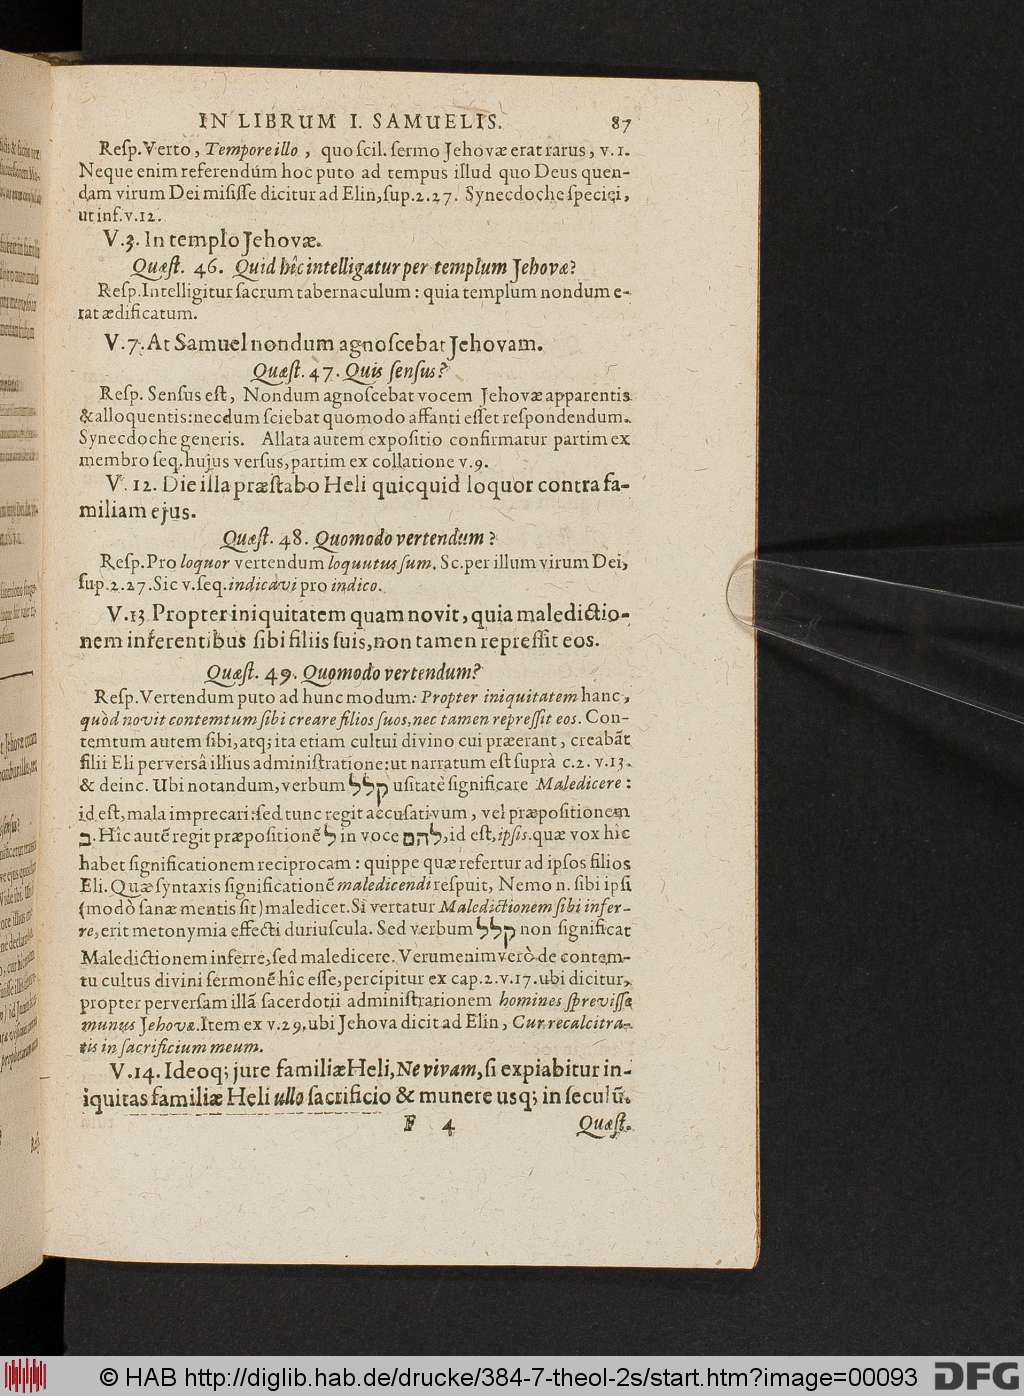 IN LIBRUM I. SAMUELIS. 87
Resp. Verto, Tempore illo, quo scil. sermo Jehovæ erat rarus, v. 1.
Neque enim referendum hoc puto ad tempus illud quo Deus quen-
dam virum Dei misisse dicitur ad Elin, sup. 2. 27. Synecdoche speciei,
ut inf. v. 12.
V. 3. In templo Jehovæ.
Quæst. 46. Quid hîc intelligatur per templum Jehovæ?
Resp. Intelligitur sacrum tabernaculum: quia templum nondum e-
rat ædificatum.
V. 7. At Samuel nondum agnoscebat Jehovam.
Quæst. 47. Quis sensus?
Resp. Sensus est, Nondum agnoscebat vocem Jehovæ apparentis
& alloquentis: necdum sciebat quomodo affanti esset respondendum.
Synecdoche generis. Allata autem expositio confirmatur partim ex
membro seq. hujus versus, partim ex collatione v. 9.
V. 12. Die illa præstabo Heli quicquid loquor contra fa-
miliam ejus.
Quæst. 48. Quomodo vertendum?
Resp. Pro loquor vertendum loquutus sum. Sc. per illum virum Dei,
sup. 2. 27. Sic v. seq. indicavi pro indico.
V. 13 Propter iniquitatem quam novit, quia maledictio-
nem inferentibus sibi filiis suis, non tamen repressit eos.
Quæst. 49. Quomodo vertendum?
Resp. Vertendum puto ad hunc modum: Propter iniquitatem hanc,
quòd novit contemtum sibi creare filios suos, nec tamen repressit eos. Con-
temtum autem sibi, atq; ita etiam cultui divino cui præerant, creabãt
filii Eli perversâ illius administratione: ut narratum est suprà c. 2. v. 13.
& deinc. Ubi notandum, verbum קלל usitatè significare Maledicere:
id est, mala imprecari: sed tunc regit accusativum, vel præpositionem
ב. Hîc autẽ regit præpositionẽ ל in voce להם, id est, ipsis. quæ vox hîc
habet significationem reciprocam: quippe quæ refertur ad ipsos filios
Eli. Quæ syntaxis significationẽ maledicendi respuit, Nemo n. sibi ipsi
(modò sanæ mentis sit) maledicet. Si vertatur Maledictionem sibi infer-
re, erit metonymia effecti duriuscula. Sed verbum קלל non significat
Maledictionem inferre, sed maledicere. Verumenimverò de contem-
tu cultus divini sermonẽ hîc esse, percipitur ex cap. 2. v. 17. ubi dicitur,
propter perversam illã sacerdotii administrationem homines sprevisse
munus Jehovæ. Item ex v. 29, ubi Jehova dicit ad Elin, Cur recalcitra-
tis in sacrificium meum.
V. 14. Ideoq; jure familiæ Heli, Ne vivam, si expiabitur in-
iquitas familiæ Heli ullo sacrificio & munere usq; in seculũ.
F 4 Quæst.
© HAB http://diglib.hab.de/drucke/384-7-theol-2s/start.htm?image=00093 DFG